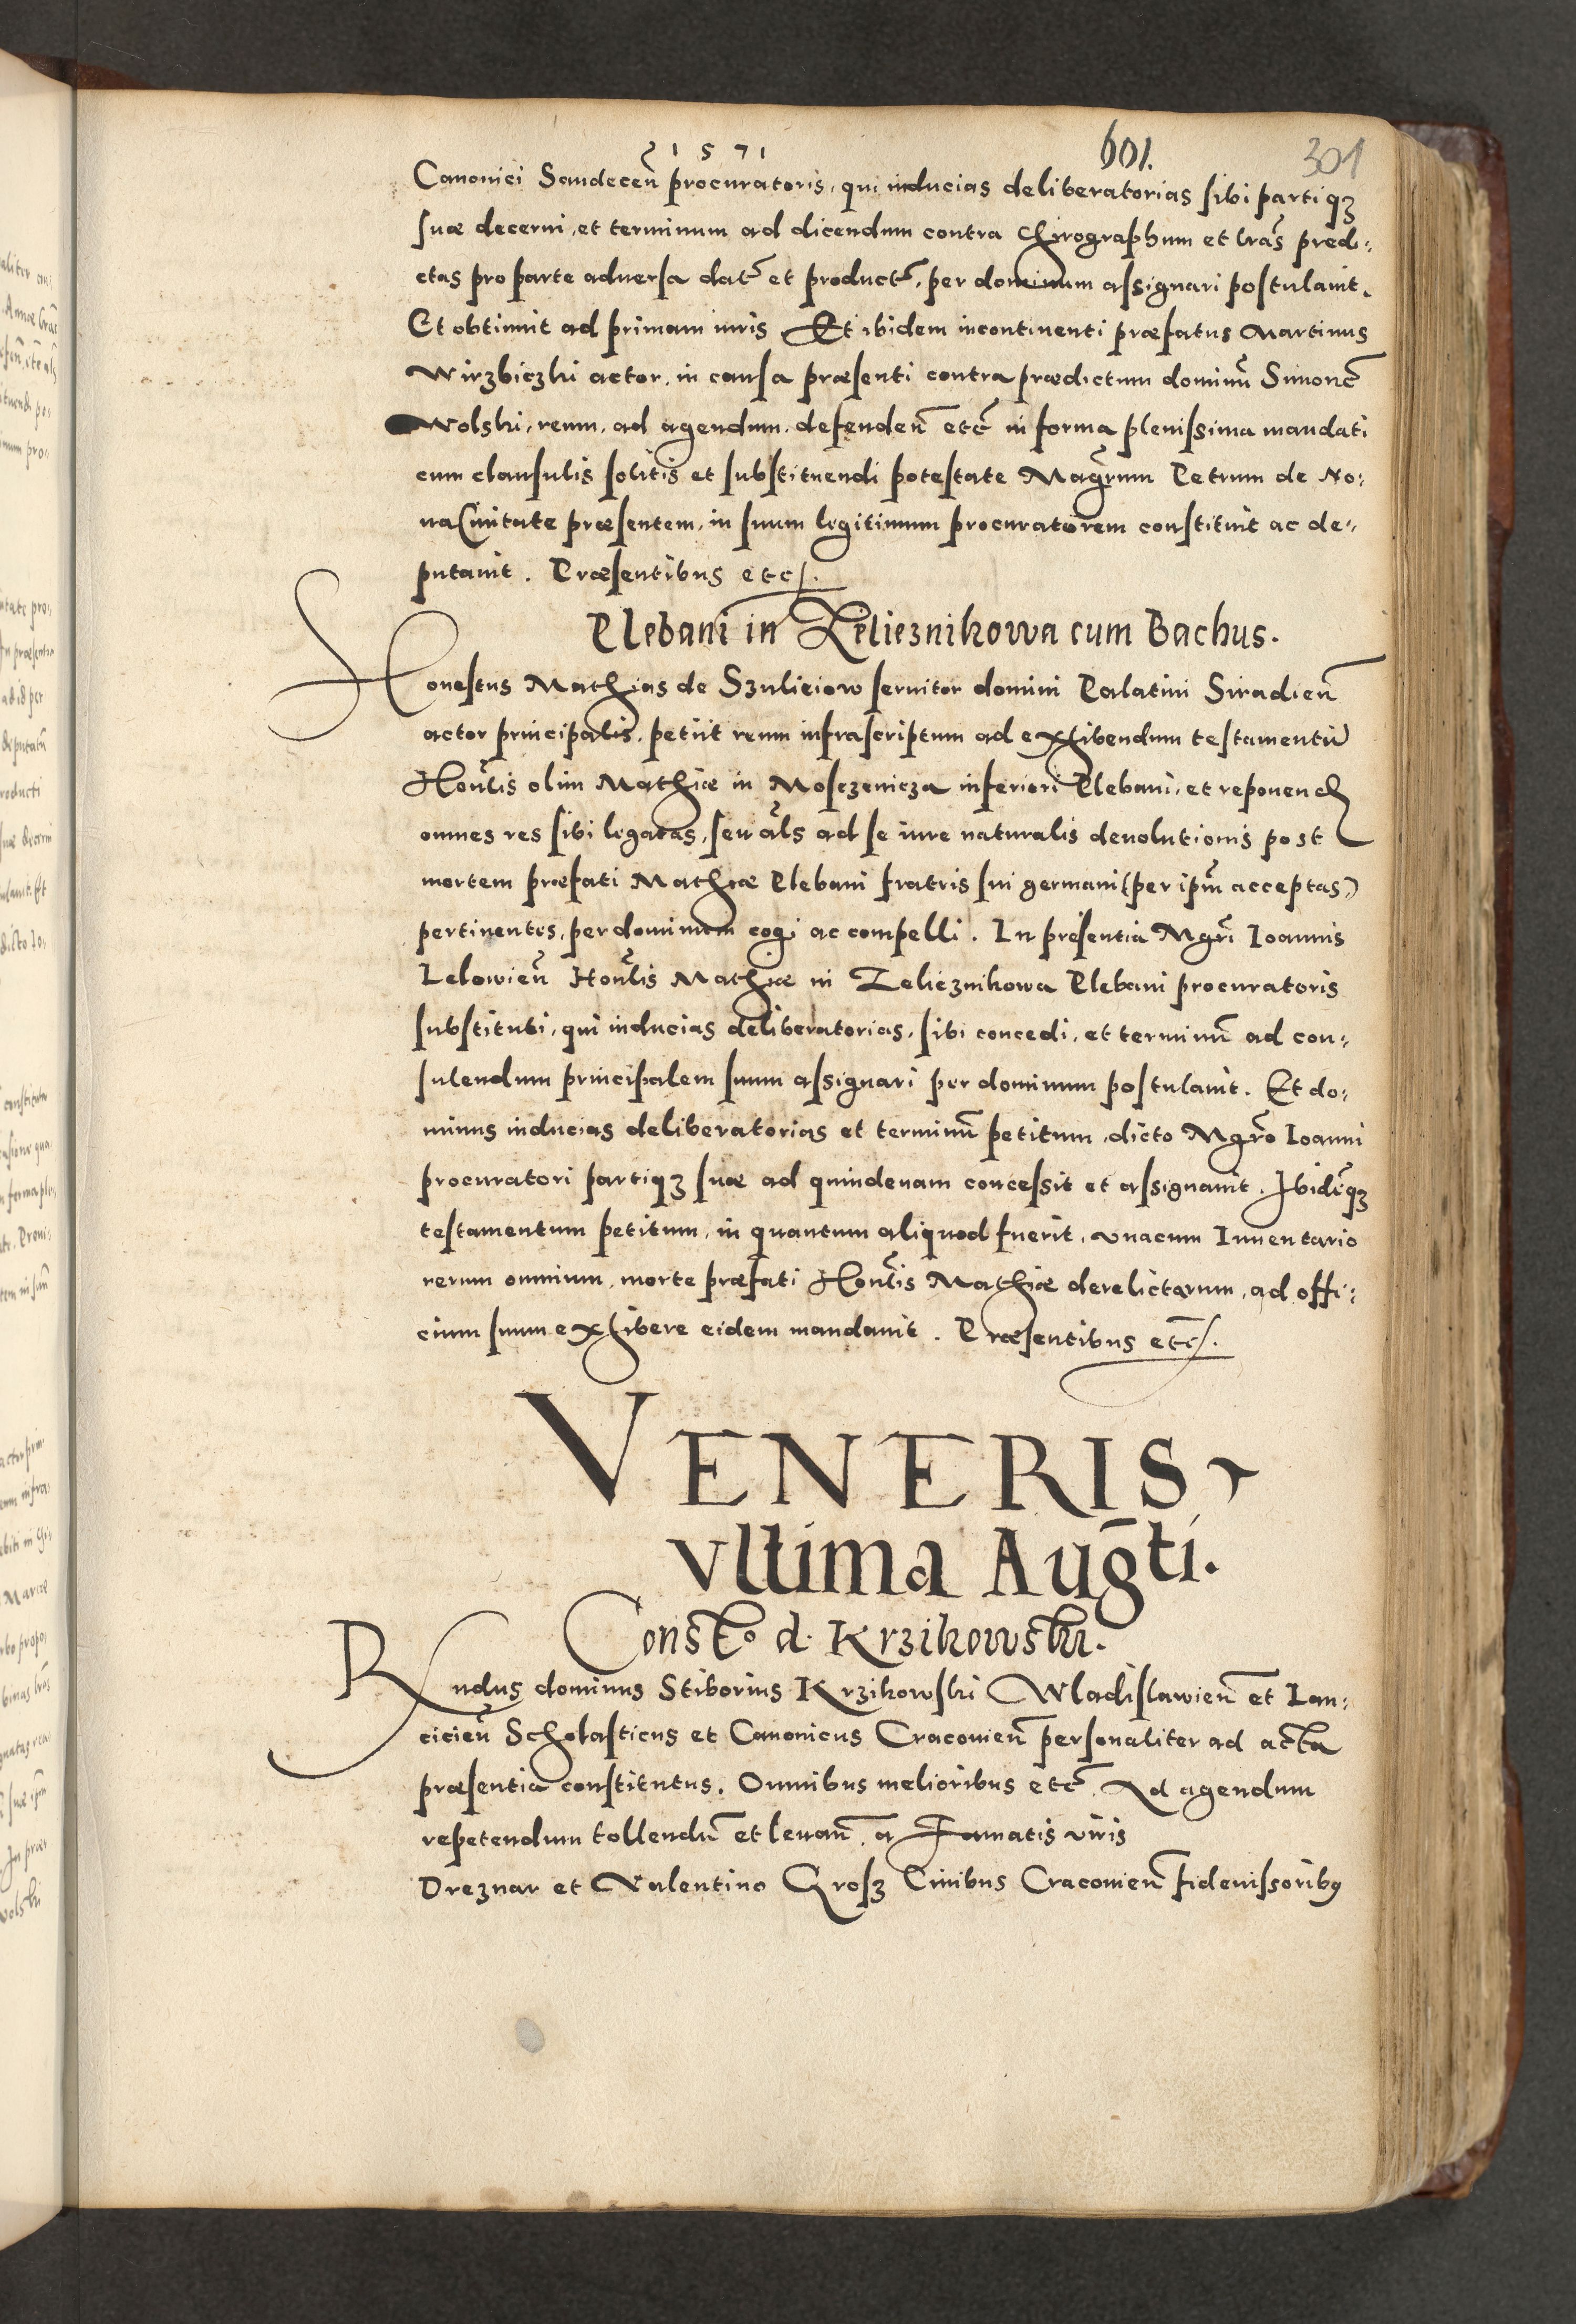 1571
601.
301
Canonici Sandeceñ procuratoris, qui inducias deliberatorias sibi partiqȝ
suæ decerni, et terminum ad dicendum contra Chirographum et l̃ras predi:
ctas pro parte adversa dat̃ et product̃, per dominum assignari postulavit.
Et obtinuit ad primam iuris Et ibidem incontinenti præfatus Martinus
Wirzbiczki actor, in causa præsenti contra prædictum dominũ Simonẽ
Wolski, reum, ad agendum, defendeñ etc̃ in forma plenissima mandati
cum clausulis solitis et substituendi potestate Magr̃um Petrum de No:
va Civitate præsentem, in suum legitimum procuratorem constituit ac de:
putavit. Præsentibus etc.
Plebani in Zelieznikowa cum Bachus.
Honestus Mathias de Szulieiow servitor domini Palatini Siradieñ
actor principalis, petiit reum infrascriptum ad exhibendum testamentũ
Hon̄lis olim Mathiæ in Mosczenicza inferiori Plebani, et reponend̃
omnes res sibi legatas, seu al̃s ad se iure naturalis devolutionis post
mortem præfati Mathiæ Plebani fratris sui germani (per ip̃m acceptas)
pertinentes, per dominum cogi ac compelli. In presentia Mgr̃i Ioannis
Lelowieñ Hon̄lis Mathiæ in Zelieznikowa Plebani procuratoris
substituti, qui inducias deliberatorias, sibi concedi, et terminũ ad con:
sulendum principalem suum assignari per dominum postulavit. Et do:
minus inducias deliberatorias et terminũ petitum, dicto Mgr̃o Ioanni
procuratori partiqȝ suæ ad quindenam concessit et assignavit. Ibidẽqȝ
testamentum petitum, in quantum aliquod fuerit, unacum Inventario
rerum omnium, morte præfati Hon̄lis Mathiæ derelictarum, ad offi:
cium suum exhibere eidem mandavit. Præsentibus etc̃.
VENERIS
vltima Aug̃ti.
Const.o d. Krzikowski.
Rndus dominus Stiborius Krzikowski Wladislawieñ et Lan:
cicieñ Scholasticus et Canonicus Cracovieñ personaliter ad acta
præsentia constitutus. Omnibus melioribus etc̃. Ad agendum
repetendum tollendũ et levañ, a Famatis viris
Dreznar et Valentino Grosz Civibus Cracovieñ fideiussoribꝰ